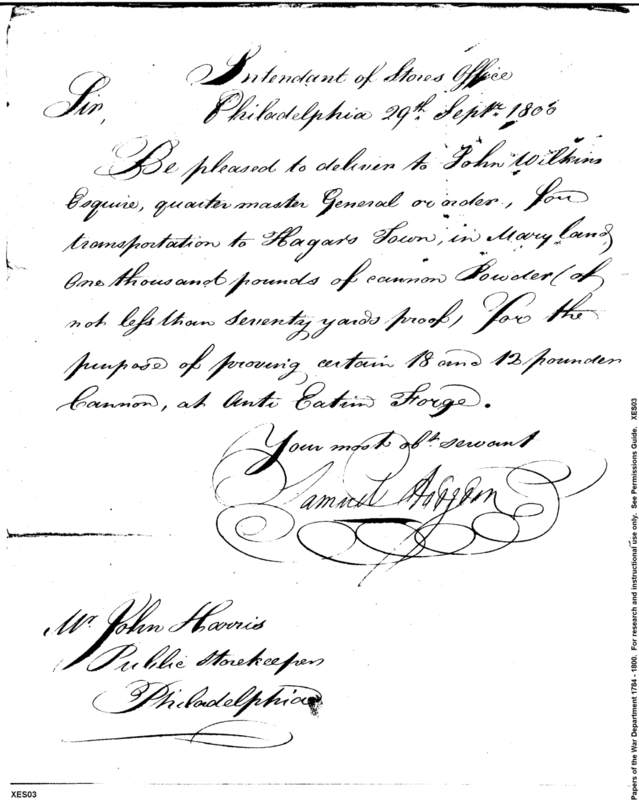 Intendant of Stores Office
Philadelphia 29th. Septr. 1800
Sir,
Be pleased to deliver to John Wilkins
Esquire, quarter master General or order, for
transportation to Hagars Town, in Maryland,
One thousand pounds of cannon Powder (of
not less than seventy yards proof) For the
purpose of proving certain 18 and 12 pounder
Cannon, at Anti Eatim Forge.
Your most obt. servant
Samuel Hodgdon
Mr. John Harris
Public Storekeeper
Philadelphia
XES03
Papers of the War Department 1784 - 1800. For research and instructional use only. See Permissions Guide. XES03